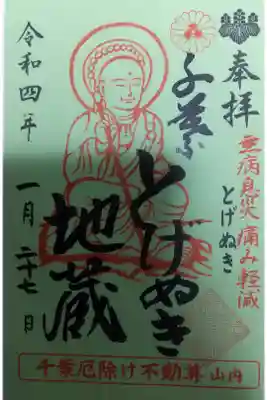 奉拝
無病息災 痛み軽減
とげぬき
千葉
とげぬき
地蔵
令和四年
一月二十七日
千葉厄除け不動尊山内